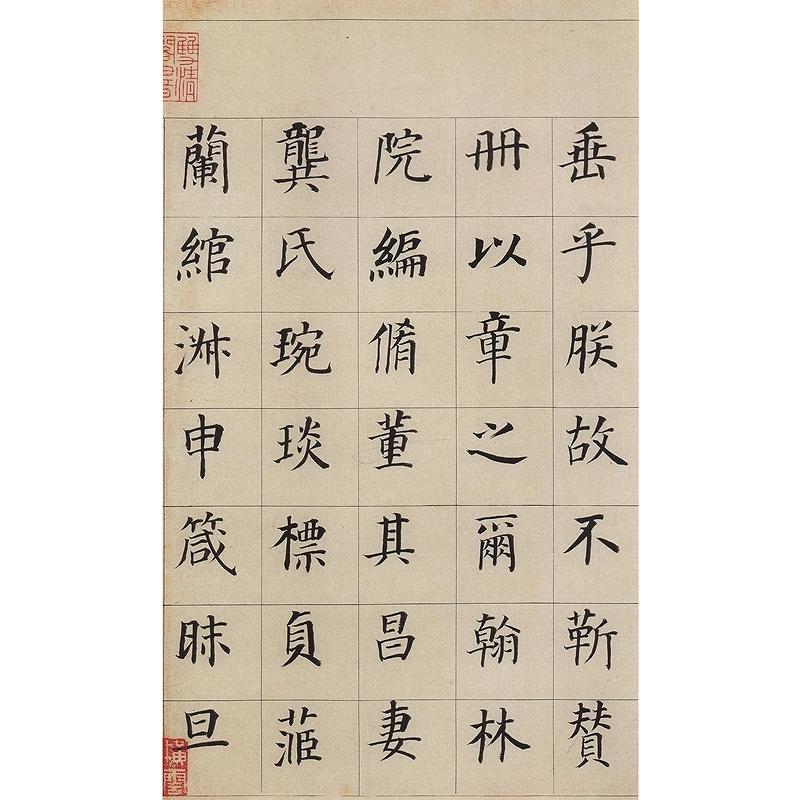 垂乎朕故不靳贊
冊以章之爾翰林
院編脩董其昌妻
龔氏琬琰標貞
蘭綰申箴昧旦
雙清